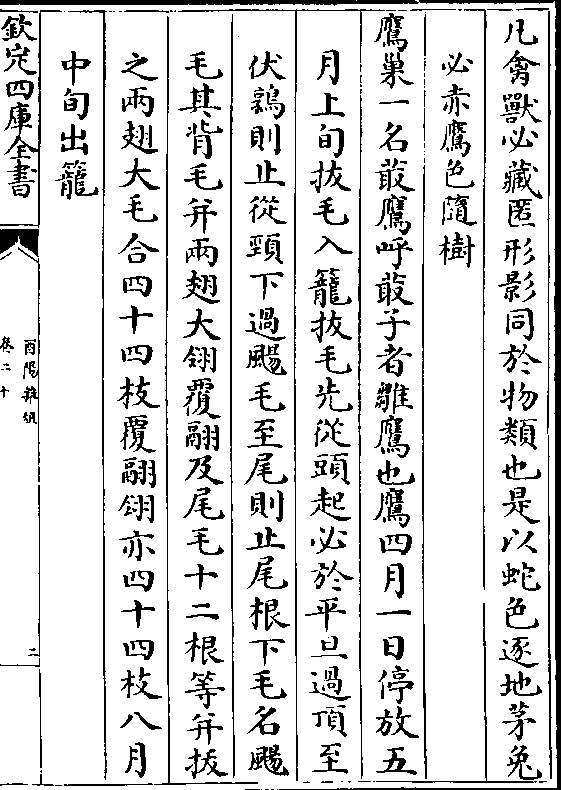 凡禽獸必藏匿形影同於物類也是以蛇色逐地茅兔
必赤鷹色隨樹
鷹巢一名菆鷹呼菆子者雛鷹也鷹四月一日停放五
月上旬拔毛入籠拔毛先從頭起必於平旦過頂至
伏鶉則止從頸下過颺毛至尾則止尾根下毛名颺
毛其背毛并兩翅大翎覆翮及尾毛十二根等并拔
之兩翅大毛合四十四枝覆翮翎亦四十四枝八月
中旬出籠
欽定四庫全書
酉陽雜俎
卷二十
二